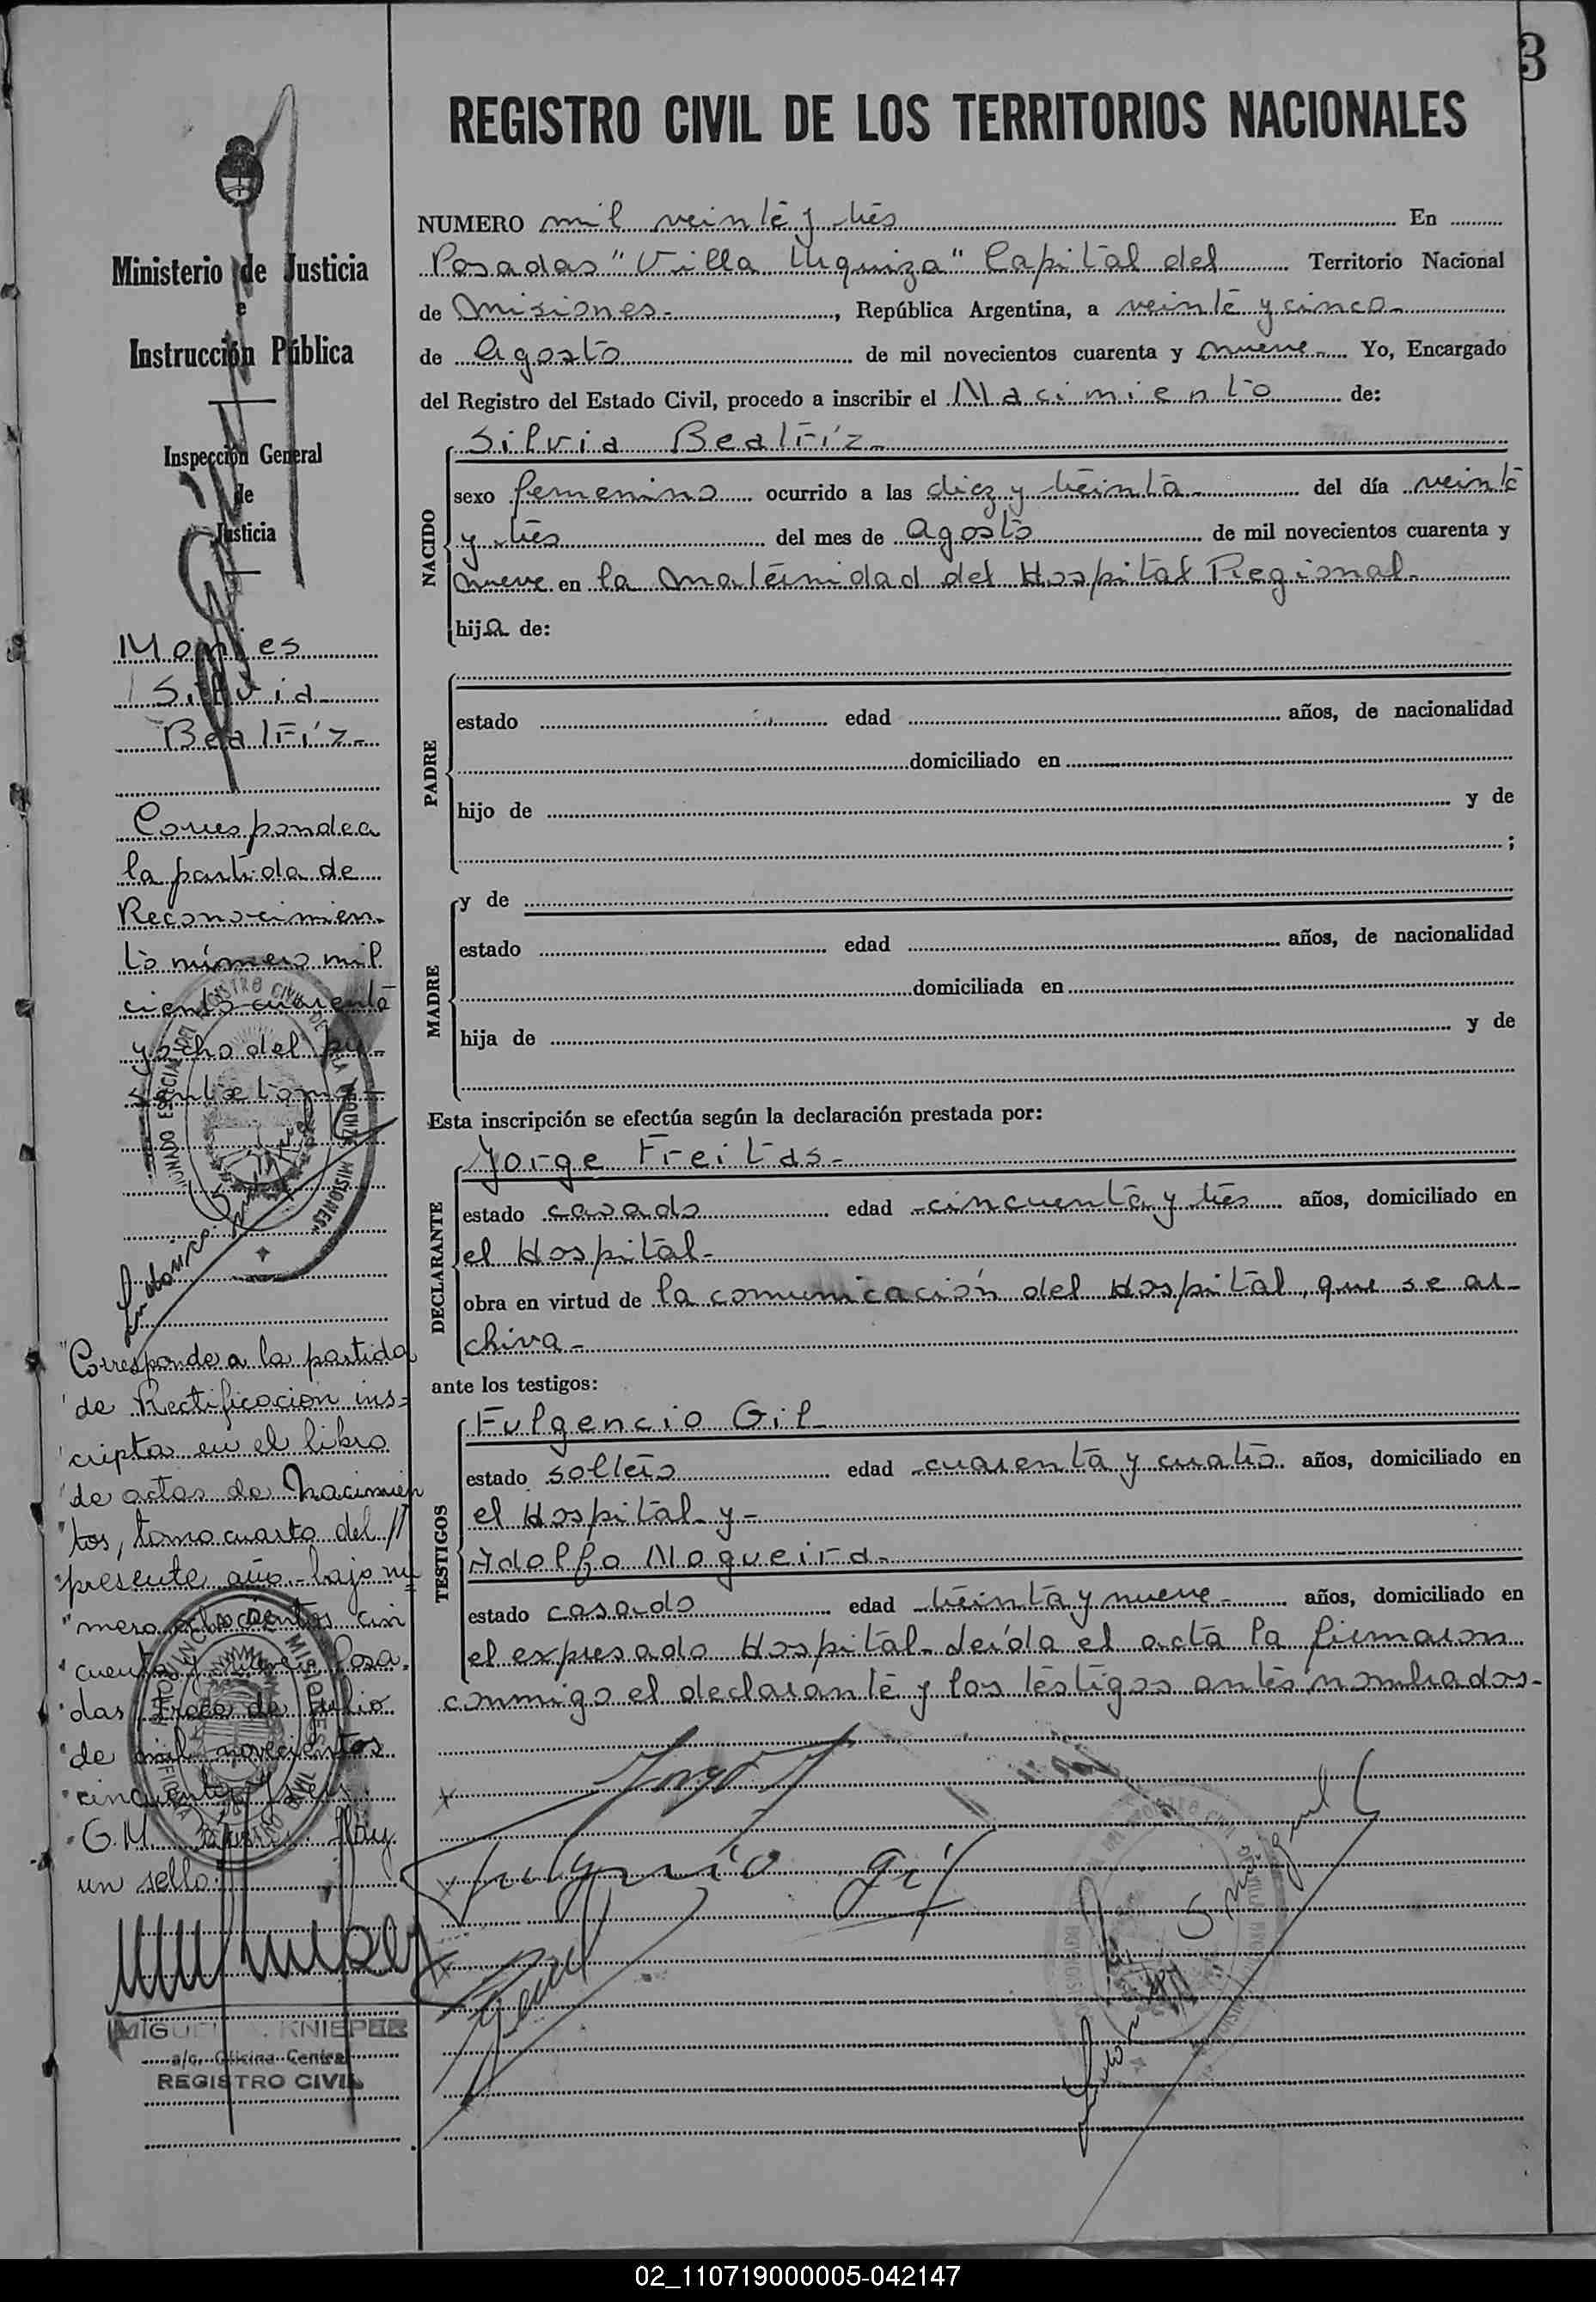 3
REGISTRO CIVIL DE LOS TERRITORIOS NACIONALES
Ministerio de Justicia
e
Instrucción Pública
Inspección General
de
Justicia
Silvia
Beatríz-
Corresponde a
la partida de
Reconocimien-
to número mil
ciento cuarenta
y ocho del pre-
sente tomo-
"Corresponde a la partida
"de Rectificacion ins=
"cripta en el libro
"de actas de Nacimien
"tos, tomo cuarto del //
"presente año - bajo nú=
"mero ochocientos cin
"cuenta y nueve. Posa.
"das, trece de julio
"de mil novecientos
"cincuenta y
"G.M. Hay
un sello.
MIGUEL KNIEPER
a/c. Oficina Central
REGISTRO CIVIL
NUMERO mil veinte y tres En
Posadas "Villa Urquiza" Capital del Territorio Nacional
de Misiones-, República Argentina, a veinte y cinco-
de Agosto de mil novecientos cuarenta y nueve- Yo, Encargado
del Registro del Estado Civil, procedo a inscribir el Nacimiento de:
NACIDO
Silvia Beatríz-
sexo femenino ocurrido a las diez y treinta- del día veinte
y tres del mes de Agosto de mil novecientos cuarenta y
nueve en la Maternidad del Hospital Regional-
hija de:
PADRE
estado edad años, de nacionalidad
domiciliado en
hijo de y de
;
MADRE
y de
estado edad años, de nacionalidad
domiciliada en
hija de y de
Esta inscripción se efectúa según la declaración prestada por:
DECLARANTE
Jorge Freitas-
estado casado edad cincuenta y tres años, domiciliado en
el Hospital-
obra en virtud de la comunicación del Hospital, que se ar-
chiva-
ante los testigos:
TESTIGOS
Fulgencio Gil
estado soltero edad cuarenta y cuatro años, domiciliado en
el Hospital y-
Adolfo Nogueira-
estado casado edad treinta y nueve- años, domiciliado en
el expresado Hospital- Leída el acta la firmaron
conmigo el declarante y los testigos antes nombrados-
Fulgencio Gil
02_110719000005-042147